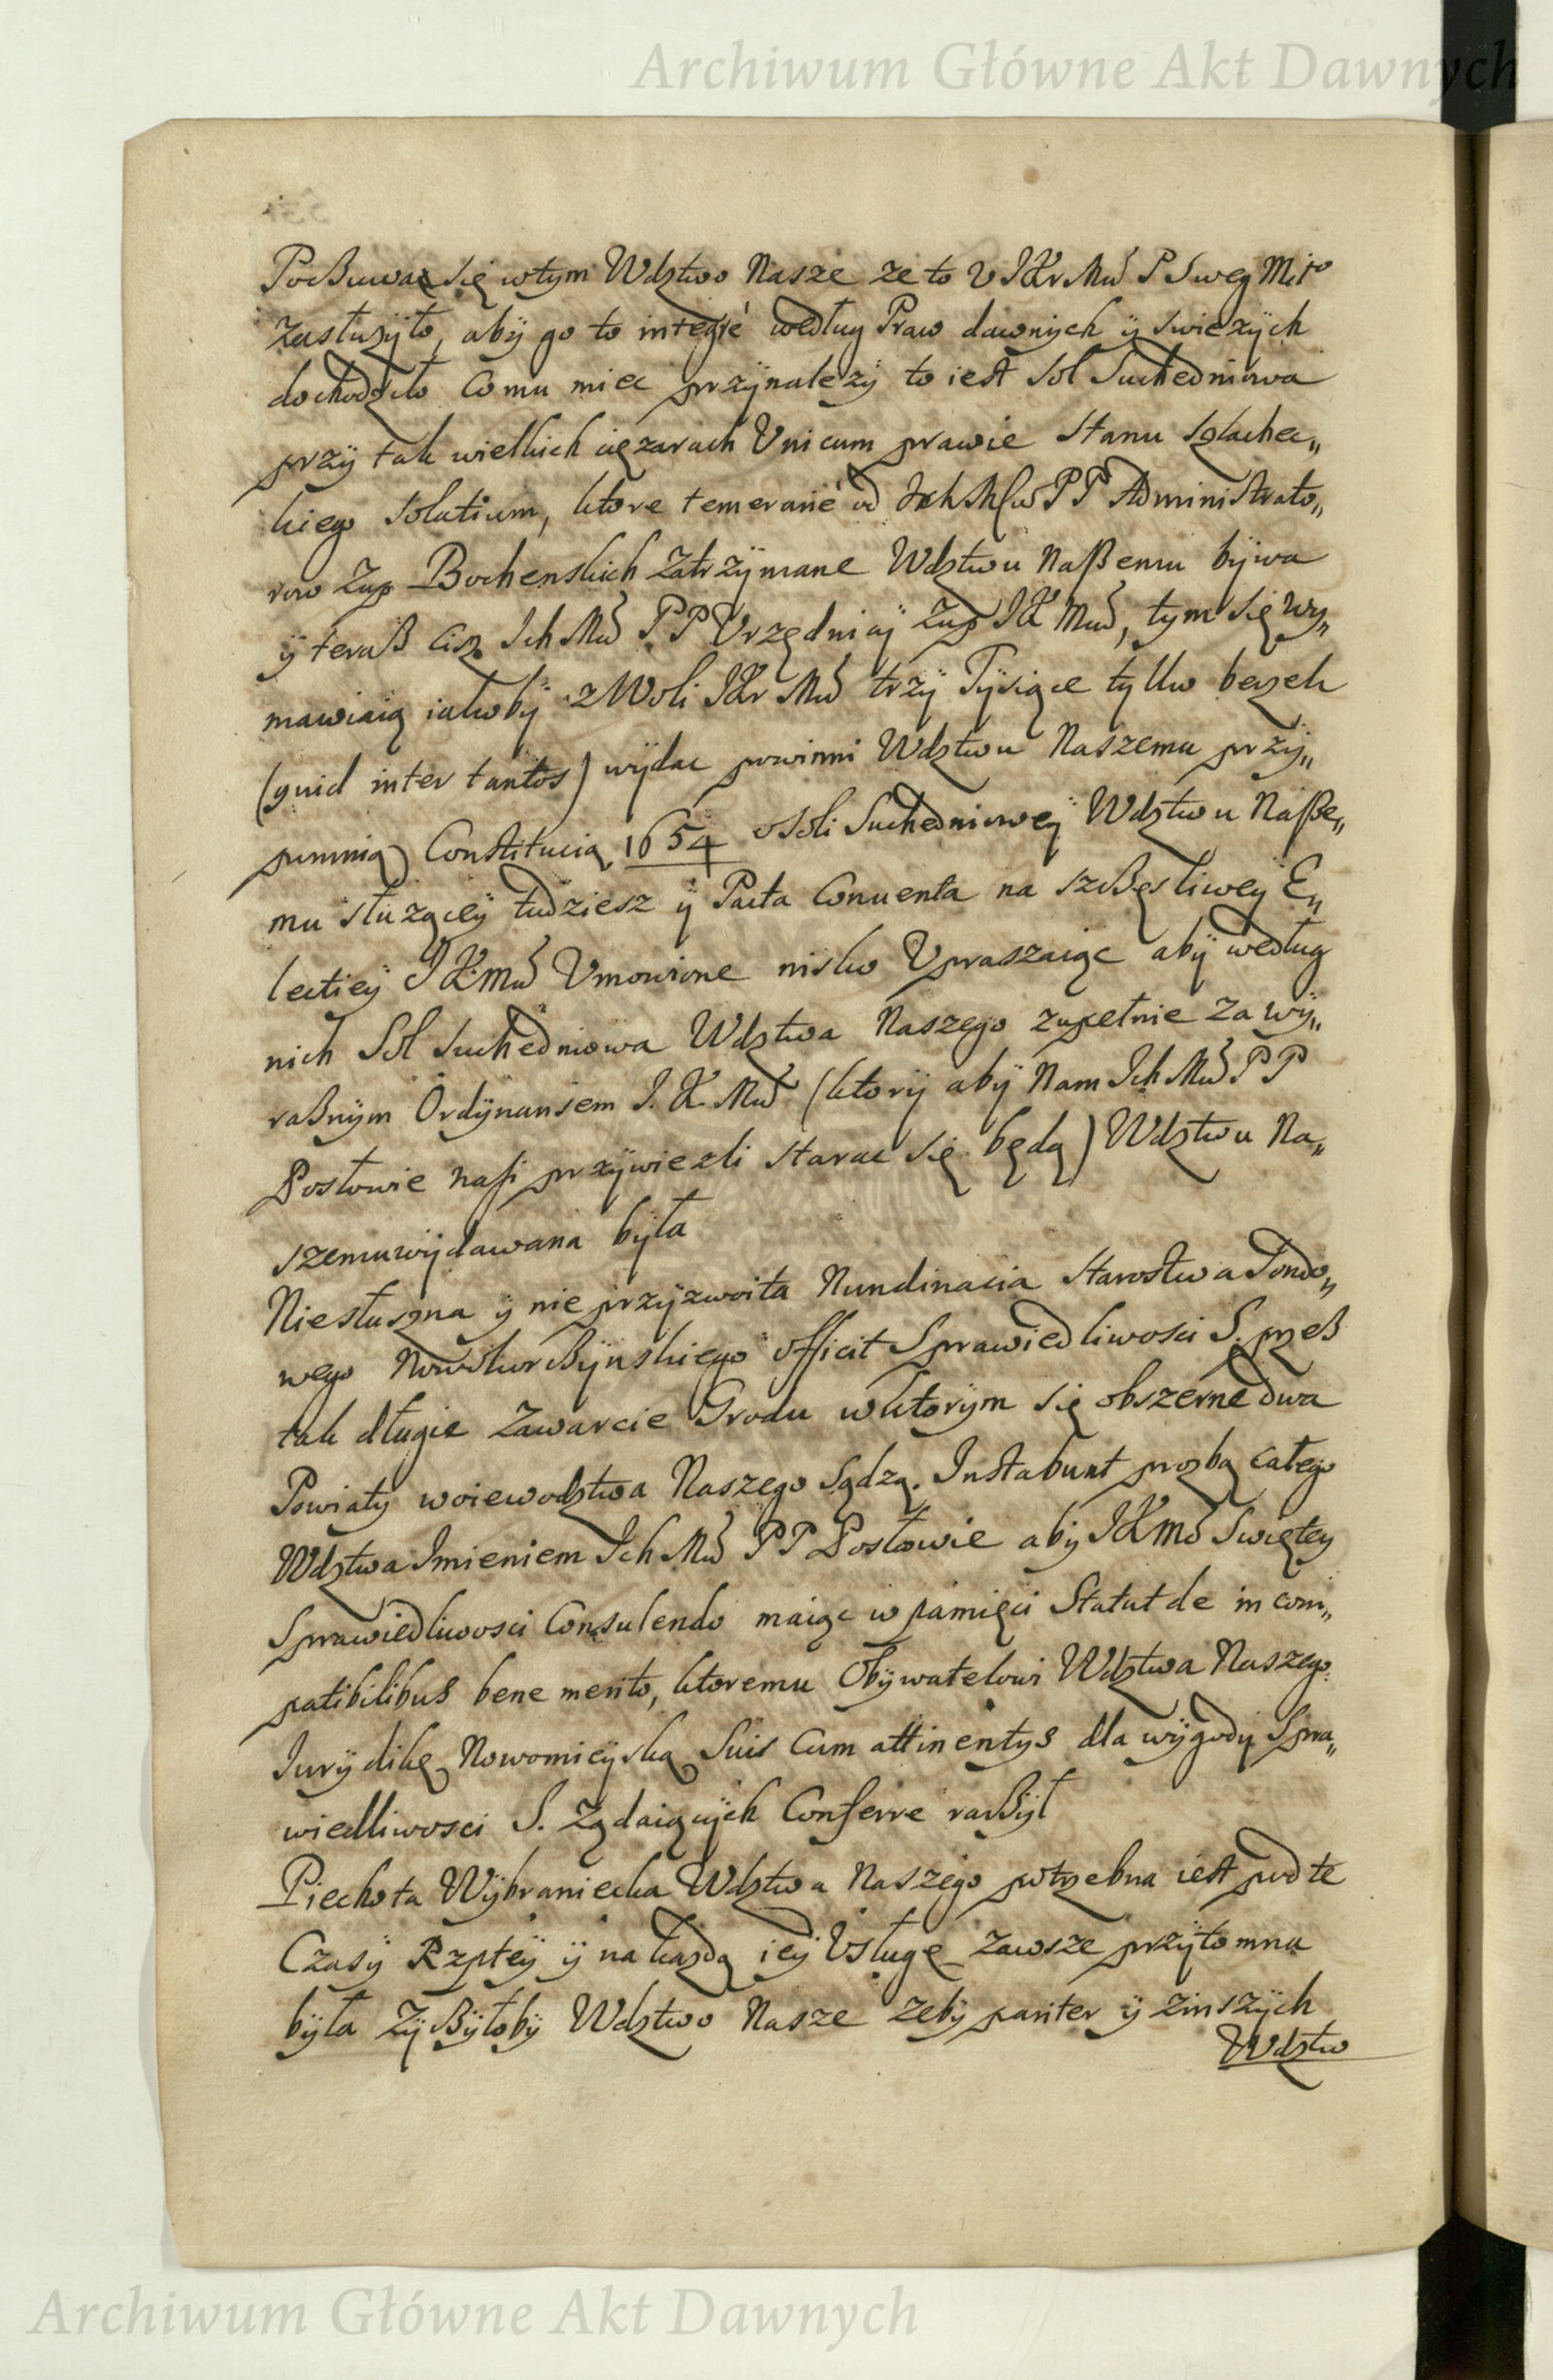 Archiwum Główne Akt Dawnych
Poßuwaą się wtym Wdztwo Nasze ze to V JKr Mći P Sweg Mito
zasłuzyło, abÿ go to integré według Praw dawnÿch ÿ swiezÿch
dochodziło Co mu miec przÿnalezÿ to iest Sol Suchedniowa
przÿ tak wielkich cięzarach Vnicum prawie Stanu Szlachec„
kiego solatium, ktore temerarie od Ich Mćiow PP Administrato„
row Zup Bochenskich Zatrzÿmane Wdztwu Naßemu bÿwa
ÿ teraß cisz Ich Mći PP Vrzędnicÿ Zup JK Mći, tym się wy„
mawiaią iakobÿ z Woli JKr Mći trzÿ Tÿsiące tylko beczek
(quid inter tantos) wÿdac powinni Wdztwu Naszemu przÿ„
pumnią Constitucią 1654 o Soli Suchedniowey Wdztwu Naße„
mu słuzącÿ tudziesz ÿ Pacta Conuenta na szczßęsliwey E„
lectiey J K Mći Vmowione nisko Vpraszaiąc abÿ według
nich Sol Suchedniowa Wdztwa Naszego zupełnie za wÿ„
raßnÿm Ordÿnansem J. K Mći (ktorÿ abÿ Nam Ich Mći PP
Posłowie nasi przÿwiezli starac się będą) Wdztwu Na„
szemu wÿdawana bÿła
Niesłuszna ÿ nie przÿzwoita Nundinacia Starostwa Jondo„
wego Nowokorcßÿnskiego officit Sprawiedliwosci S. przeß
tak długie Zawarcie Grodu wktorÿm się obszerne dwa
Powiaty woiewodztwa Naszego Sądzą. Instabunt prozbą całego
Wdztwa Imieniem Ich Mći PP Posłowie abÿ JKMći Swiętey
Sprawiedliwosci Consulendo maiąc w pamięci Statut de in com„
patibilibus bene merito, ktoremu Obÿwatelowi Wdztwa Naszego
Iurÿdikę Nowomieÿską Suis Cum attinentys dla wÿgodÿ Spra„
wiedliwosci S. Ządaiącÿch Conferre racßÿł
Piechota Wÿbraniecka Wdztwa Naszego potrzebna iest pod te
Czasÿ Rzptey ÿ na kazdą ieÿ Vsługę zawsze przÿtomna
bÿła Zÿcßÿłobÿ Wdztwo Nasze zebÿ pariter ÿ Zinszÿch
Wdztw
Archiwum Główne Akt Dawnych